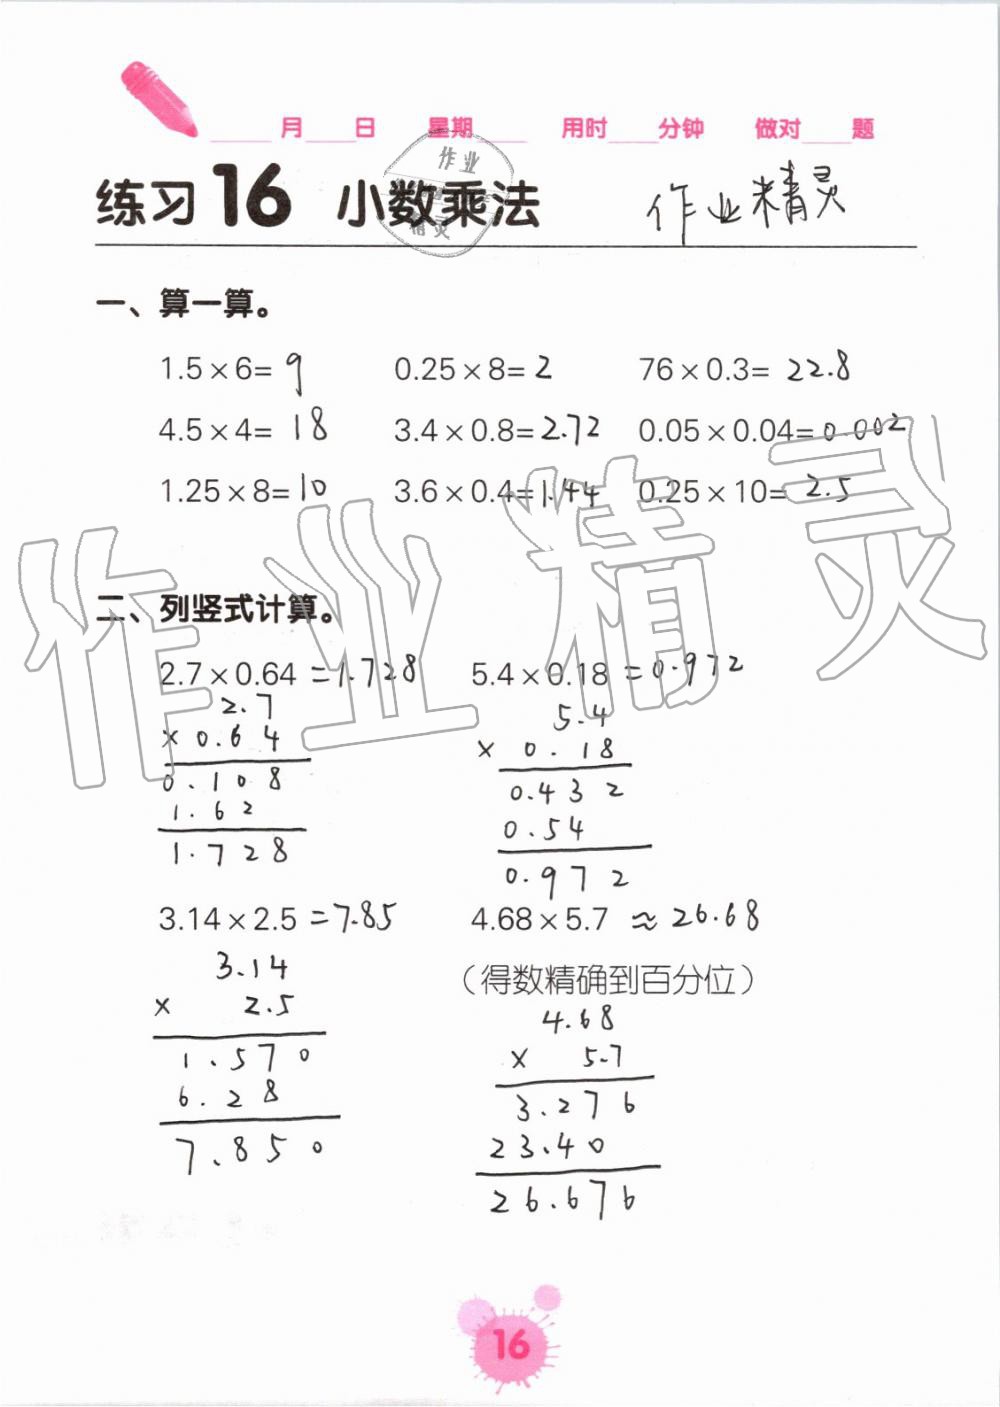 ____月____日 星期____ 用时____分钟 做对____题
练习16 小数乘法 作业精灵
作业
精灵
一、算一算。
1.5×6=9 0.25×8=2 76×0.3=22.8
4.5×4=18 3.4×0.8=2.72 0.05×0.04=0.002
1.25×8=10 3.6×0.4=1.44 0.25×10=2.5
作业精灵
二、列竖式计算。
2.7×0.64=1.728 5.4×0.18=0.972
2.7 5.4
×0.64 ×0.18
0.108 0.432
1.62 0.54
1.728 0.972
3.14×2.5=7.85 4.68×5.7≈26.68
(得数精确到百分位)
3.14 4.68
×2.5 ×5.7
1.570 3.276
6.28 23.40
7.850 26.676
16